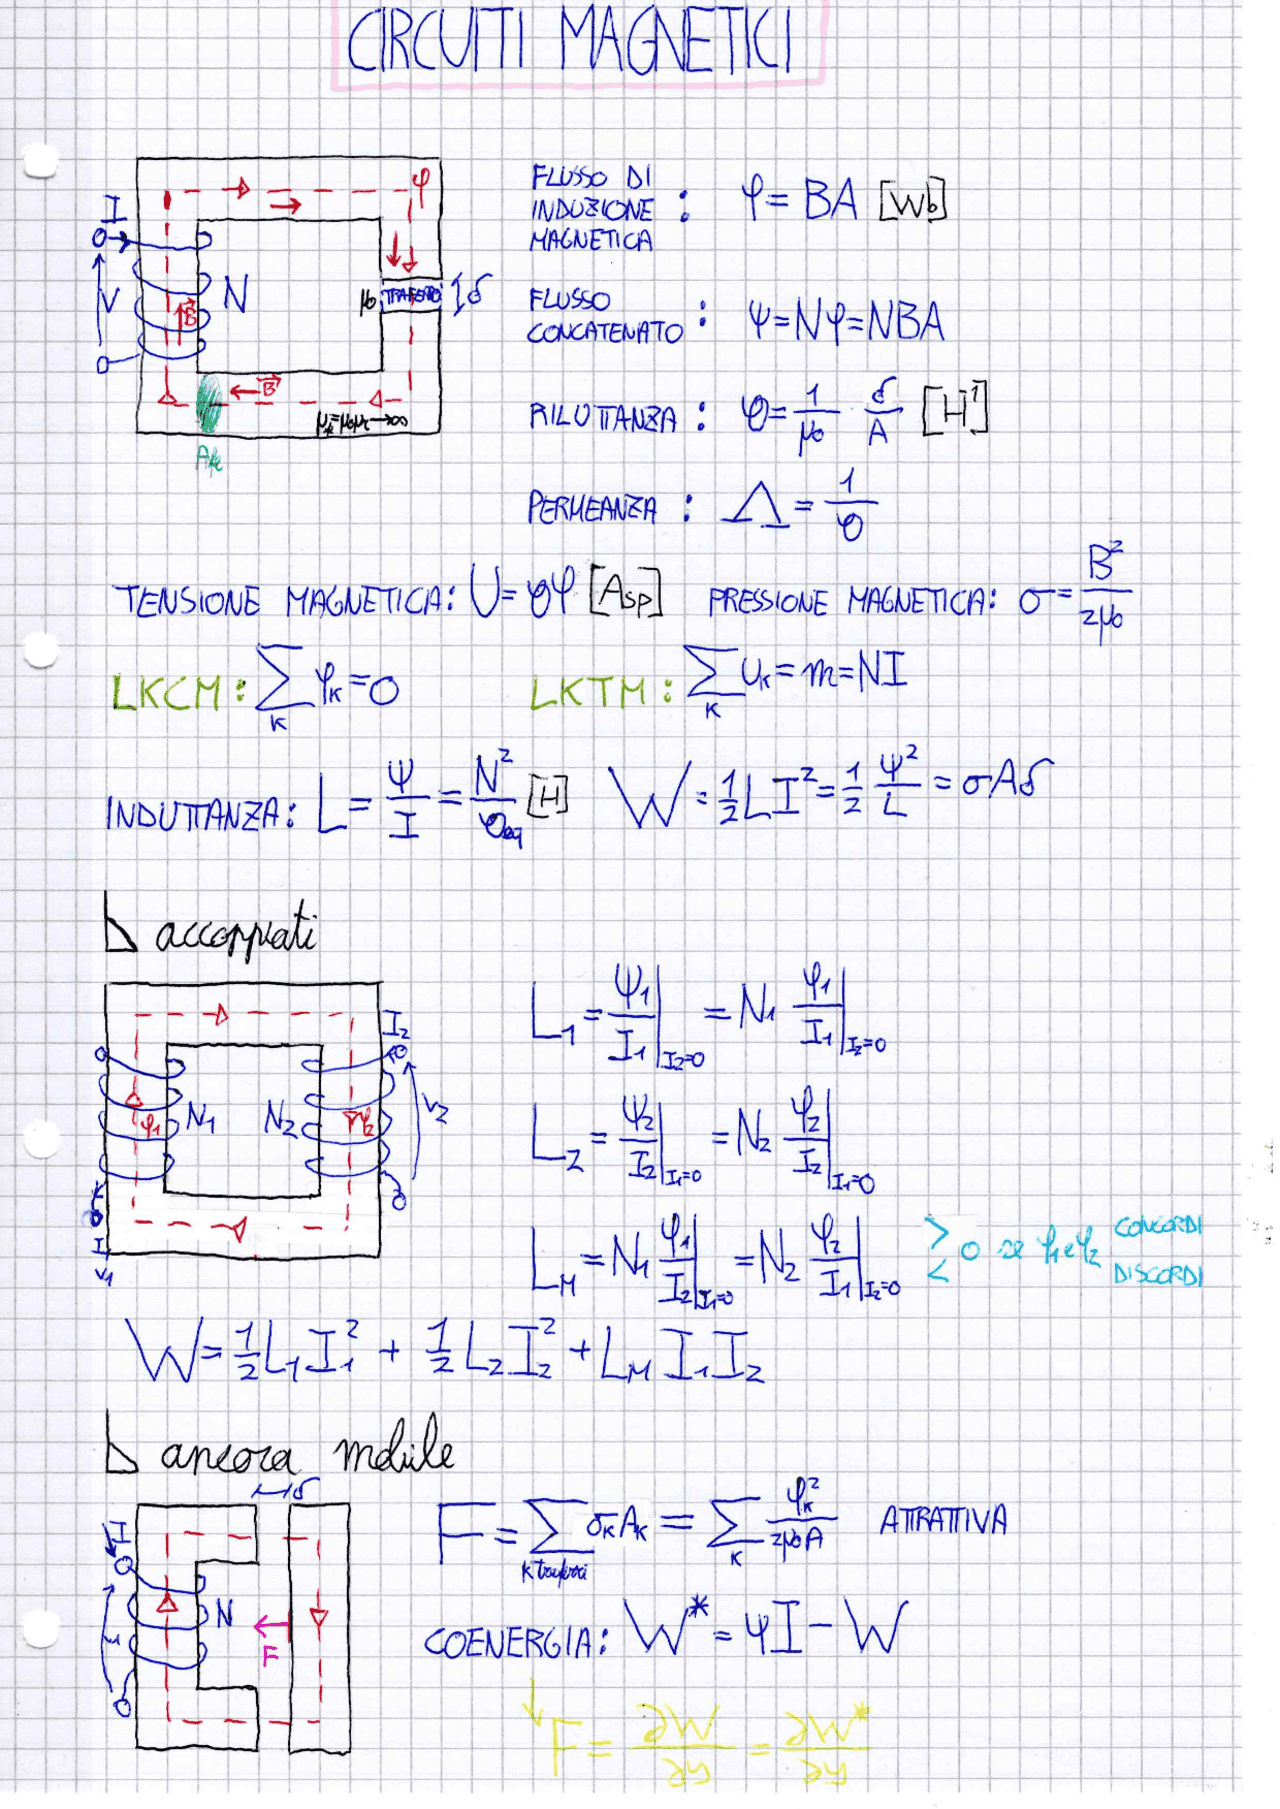 CIRCUITI MAGNETICI
I
V
N
B⃗
φ
μ₀ TRAFERRO δ
B⃗
μfe=μ₀μr→∞
Afe
FLUSSO DI INDUZIONE MAGNETICA : φ = BA [Wb]
FLUSSO CONCATENATO : ψ=Nφ=NBA
RILUTTANZA : θ = 1/μ₀ δ/A [H⁻¹]
PERMEANZA : Λ = 1/θ
TENSIONE MAGNETICA: U=θφ [Asp] PRESSIONE MAGNETICA: σ = B²/2μ₀
LKCM: ∑_K φ_K = 0 LKTM: ∑_K U_K = m = NI
INDUTTANZA: L = ψ/I = N²/θeq [H] W = 1/2 LI² = 1/2 ψ²/L = σAδ
accoppiati
I₂
φ₁ N₁ N₂ φ₂ V₂
I₁
V₁
L₁ = ψ₁/I₁ |I₂=0 = N₁ φ₁/I₁ |I₂=0
L₂ = ψ₂/I₂ |I₁=0 = N₂ φ₂/I₂ |I₁=0
L_M = N₁ φ₁/I₂ |I₁=0 = N₂ φ₂/I₁ |I₂=0 ≷ 0 se φ₁ e φ₂ CONCORDI DISCORDI
W = 1/2 L₁I₁² + 1/2 L₂I₂² + L_M I₁I₂
ancora mobile
δ
I
N
F
F = ∑_{k traferri} σ_K A_K = ∑_K φ_K²/2μ₀A ATTRATTIVA
COENERGIA: W* = ψI − W
F = ∂W/∂δ = ∂W*/∂δ